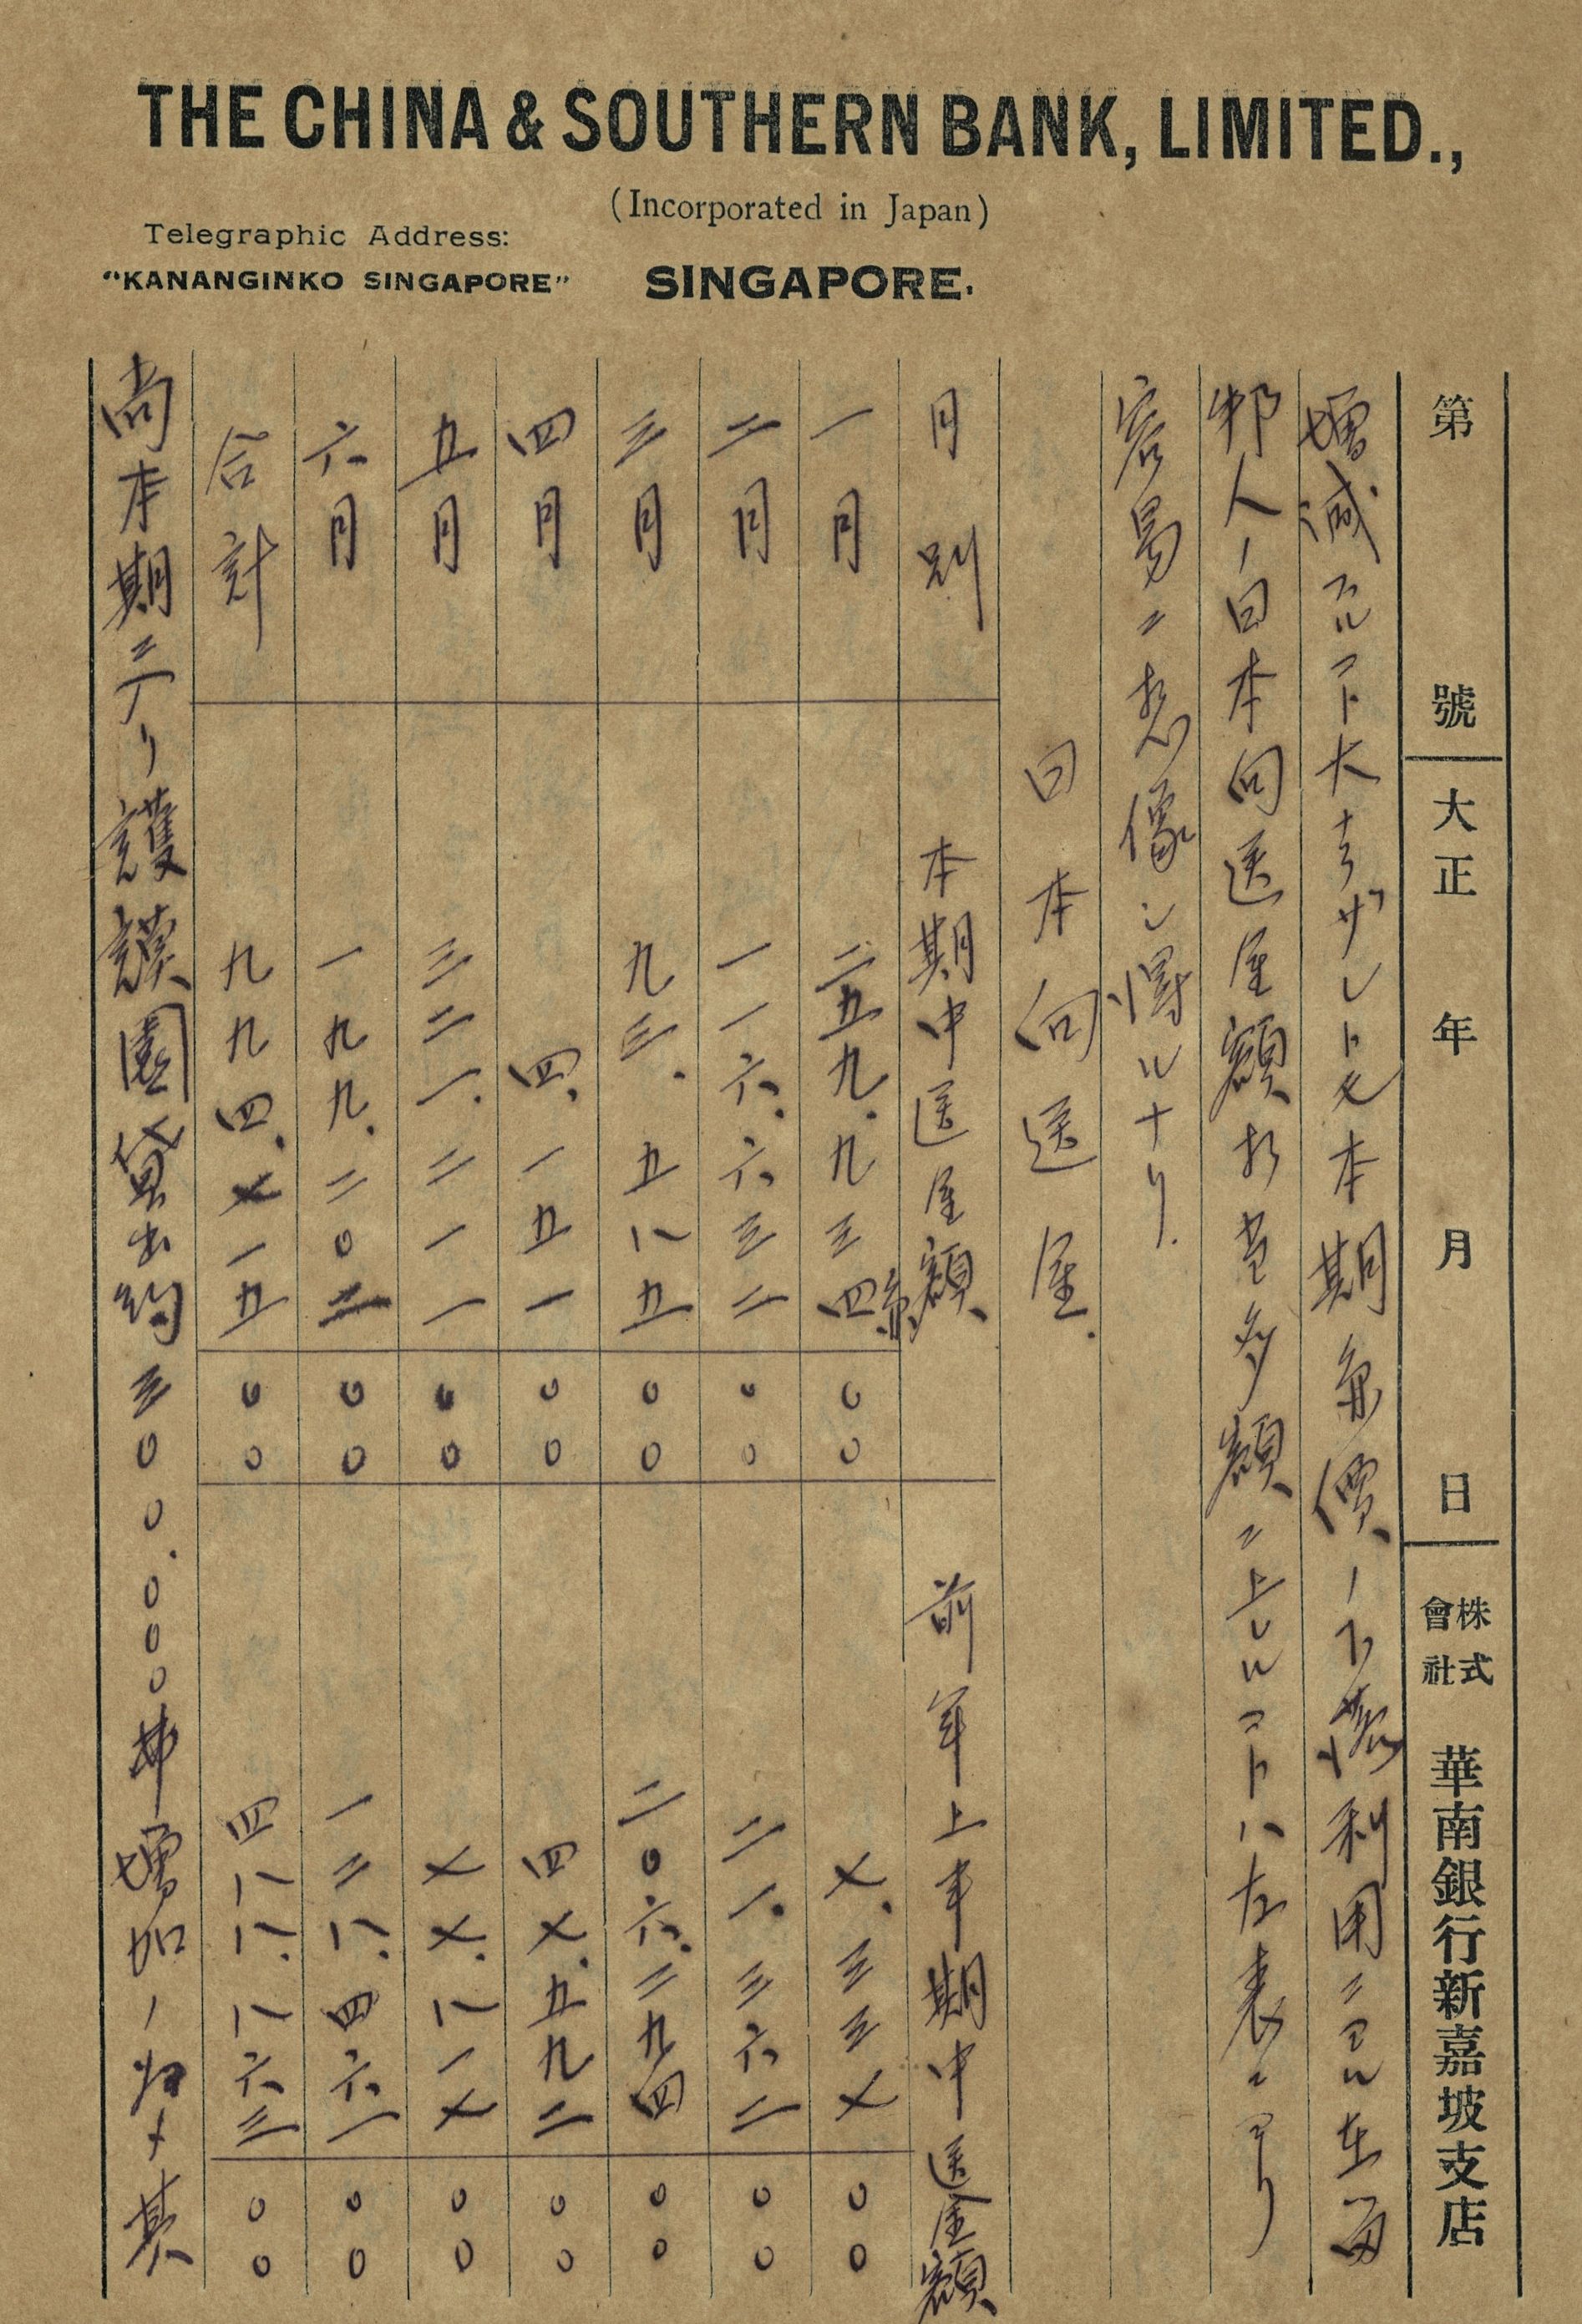 THE CHINA & SOUTHERN BANK, LIMITED.,
(Incorporated in Japan)
Telegraphic Address:
"KANANGINKO SINGAPORE"
SINGAPORE.
第 號 大正 年 月 日 株式會社 華南銀行新嘉坡支店
增減アルコト大ナラザレトモ本期 價ノ下落利用ニヨル在留
邦人ノ日本向送金額相當多額ニ上レルコトハ左表ニヨリ
容易ニ想像シ得ルナリ.
日本向送金.
月別 本期中送金額 前年上半期中送金額
一月 二五九.九三四 〇〇 七.三三七 〇〇
二月 一一六.六三二 〇〇 二一.三六二 〇〇
三月 九三.五八五 〇〇 二〇六.二九四 〇〇
四月 四.一五一 〇〇 四七.五九二 〇〇
五月 三二一.二一一 〇〇 七七.八一七 〇〇
六月 一九九.二〇二 〇〇 一二八.四六一 〇〇
合計 九九四.七一五 〇〇 四八八.八六三 〇〇
尚本期ニ リ護謨園貸出約三〇〇.〇〇〇弗增加ノ為メ其